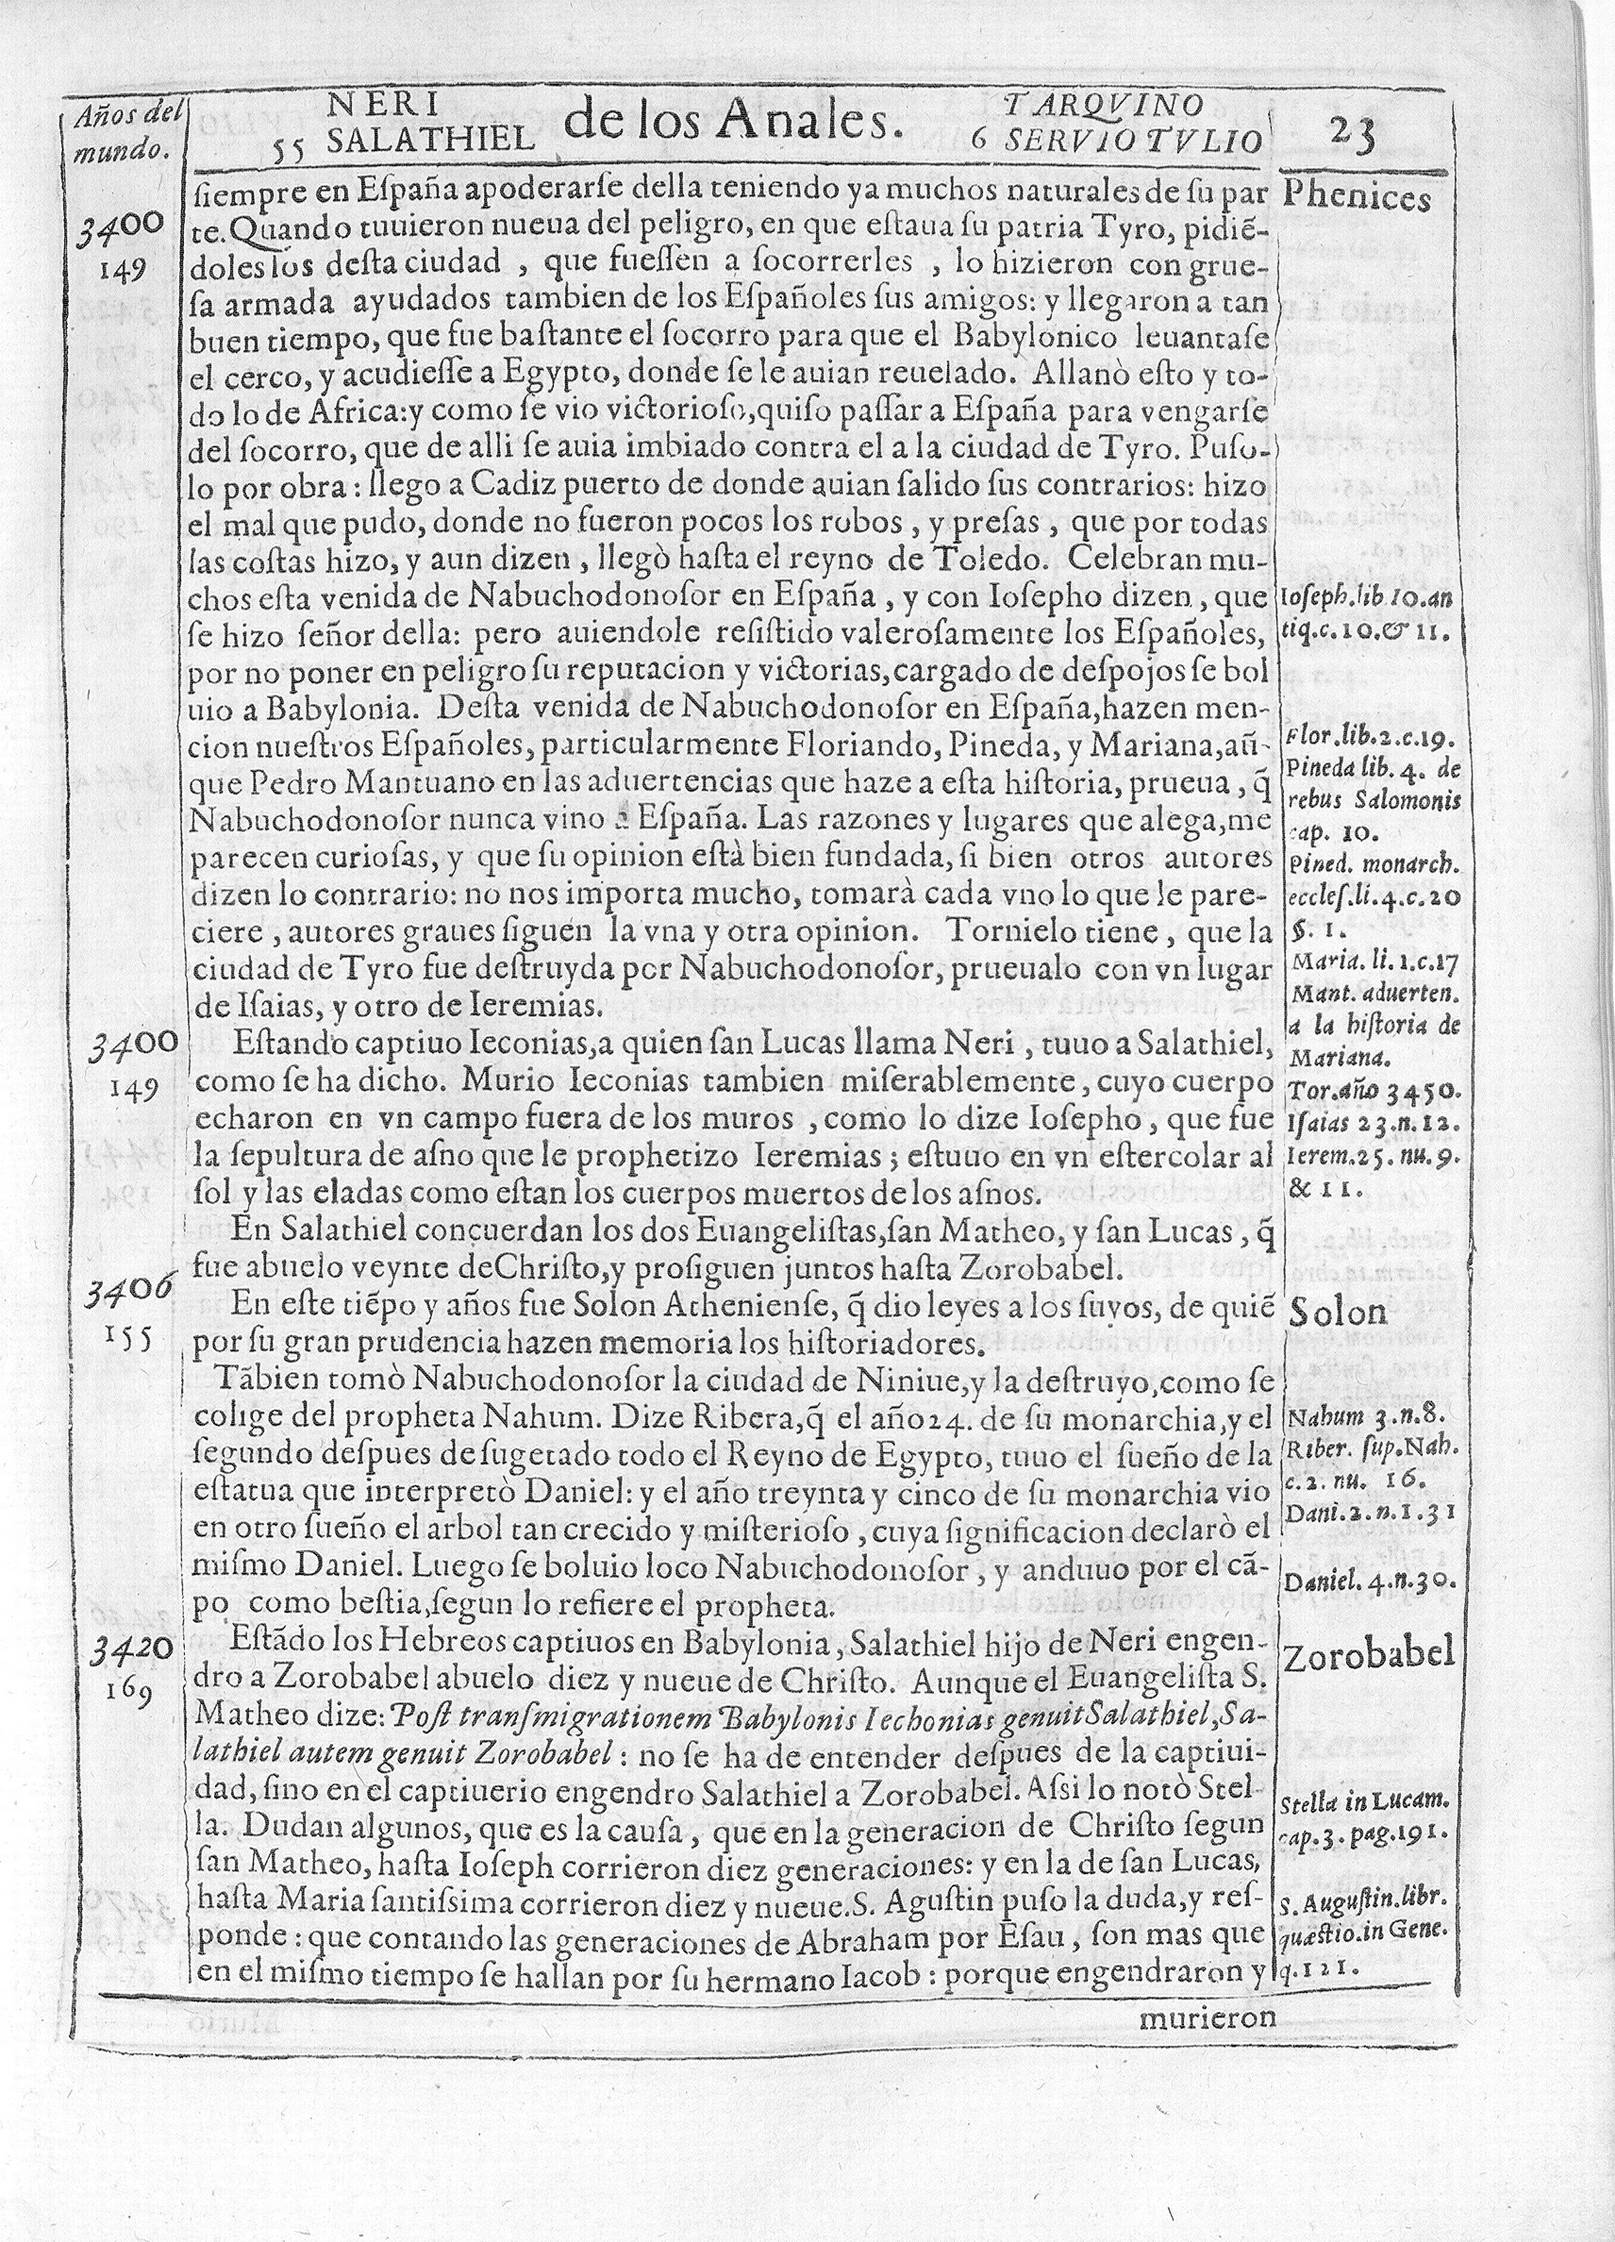 Años del
mundo.
NERI
55 SALATHIEL
de los Anales.
TARQVINO
6 SERVIO TVLIO
23
3400
149
3400
149
3406
155
3420
169
ſiempre en Eſpaña apoderarſe della teniendo ya muchos naturales de ſu par
te. Quando tuuieron nueua del peligro, en que eſtaua ſu patria Tyro, pidiẽ-
doles los deſta ciudad , que fueſſen a ſocorrerles , lo hizieron con grue-
ſa armada ayudados tambien de los Eſpañoles ſus amigos: y llegaron a tan
buen tiempo, que fue baſtante el ſocorro para que el Babylonico leuantaſe
el cerco, y acudieſſe a Egypto, donde ſe le auian reuelado. Allanò eſto y to-
do lo de Africa: y como ſe vio victorioſo, quiſo paſſar a Eſpaña para vengarſe
del ſocorro, que de alli ſe auia imbiado contra el a la ciudad de Tyro. Puſo-
lo por obra: llego a Cadiz puerto de donde auian ſalido ſus contrarios: hizo
el mal que pudo, donde no fueron pocos los robos , y preſas , que por todas
las coſtas hizo, y aun dizen , llegò haſta el reyno de Toledo. Celebran mu-
chos eſta venida de Nabuchodonoſor en Eſpaña , y con Ioſepho dizen , que
ſe hizo ſeñor della: pero auiendole reſiſtido valeroſamente los Eſpañoles,
por no poner en peligro ſu reputacion y victorias, cargado de deſpojos ſe bol
uio a Babylonia. Deſta venida de Nabuchodonoſor en Eſpaña, hazen men-
cion nueſtros Eſpañoles, particularmente Floriando, Pineda, y Mariana, aũ-
que Pedro Mantuano en las aduertencias que haze a eſta hiſtoria, prueua , q̃
Nabuchodonoſor nunca vino a Eſpaña. Las razones y lugares que alega, me
parecen curioſas, y que ſu opinion eſtà bien fundada, ſi bien otros autores
dizen lo contrario: no nos importa mucho, tomarà cada vno lo que le pare-
ciere , autores graues ſiguen la vna y otra opinion. Tornielo tiene , que la
ciudad de Tyro fue deſtruyda por Nabuchodonoſor, prueualo con vn lugar
de Iſaias, y otro de Ieremias.
Eſtando captiuo Ieconias, a quien ſan Lucas llama Neri , tuuo a Salathiel,
como ſe ha dicho. Murio Ieconias tambien miſerablemente , cuyo cuerpo
echaron en vn campo fuera de los muros , como lo dize Ioſepho , que fue
la ſepultura de aſno que le prophetizo Ieremias ; eſtuuo en vn eſtercolar al
ſol y las eladas como eſtan los cuerpos muertos de los aſnos.
En Salathiel concuerdan los dos Euangeliſtas, ſan Matheo, y ſan Lucas , q̃
fue abuelo veynte de Chriſto, y proſiguen juntos haſta Zorobabel.
En eſte tiẽpo y años fue Solon Athenienſe, q̃ dio leyes a los ſuyos, de quiẽ
por ſu gran prudencia hazen memoria los hiſtoriadores.
Tãbien tomò Nabuchodonoſor la ciudad de Niniue, y la deſtruyo, como ſe
colige del propheta Nahum. Dize Ribera, q̃ el año 24. de ſu monarchia, y el
ſegundo deſpues de ſugetado todo el Reyno de Egypto, tuuo el ſueño de la
eſtatua que interpretò Daniel: y el año treynta y cinco de ſu monarchia vio
en otro ſueño el arbol tan crecido y miſterioſo , cuya ſignificacion declarò el
miſmo Daniel. Luego ſe boluio loco Nabuchodonoſor , y anduuo por el cã-
po como beſtia, ſegun lo refiere el propheta.
Eſtãdo los Hebreos captiuos en Babylonia, Salathiel hijo de Neri engen-
dro a Zorobabel abuelo diez y nueue de Chriſto. Aunque el Euangeliſta S.
Matheo dize: Poſt tranſmigrationem Babylonis Iechonias genuit Salathiel, Sa-
lathiel autem genuit Zorobabel : no ſe ha de entender deſpues de la captiui-
dad, ſino en el captiuerio engendro Salathiel a Zorobabel. Aſsi lo notò Stel-
la. Dudan algunos, que es la cauſa , que en la generacion de Chriſto ſegun
ſan Matheo, haſta Ioſeph corrieron diez generaciones: y en la de ſan Lucas,
haſta Maria ſantiſsima corrieron diez y nueue. S. Aguſtin puſo la duda, y reſ-
ponde : que contando las generaciones de Abraham por Eſau , ſon mas que
en el miſmo tiempo ſe hallan por ſu hermano Iacob : porque engendraron y
murieron
Phenices
Ioſeph. lib 10. an
tiq. c. 10. & 11.
Flor. lib. 2. c. 19.
Pineda lib. 4. de
rebus Salomonis
cap. 10.
Pined. monarch.
eccleſ. li. 4. c. 20
§. 1.
Maria. li. 1. c. 17
Mant. aduerten.
a la hiſtoria de
Mariana.
Tor. año 3450.
Iſaias 23. n. 12.
Ierem. 25. nu. 9.
& 11.
Solon
Nahum 3. n. 8.
Riber. ſup. Nah.
c. 2. nu. 16.
Dani. 2. n. 1. 31
Daniel. 4. n. 30.
Zorobabel
Stella in Lucam.
cap. 3. pag. 191.
S. Auguſtin. libr.
quæſtio. in Gene.
q. 121.